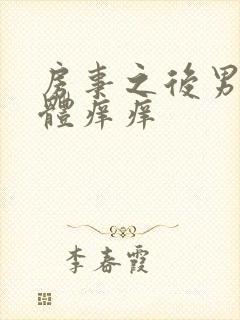 房事之後男
體痒痒
李春霞